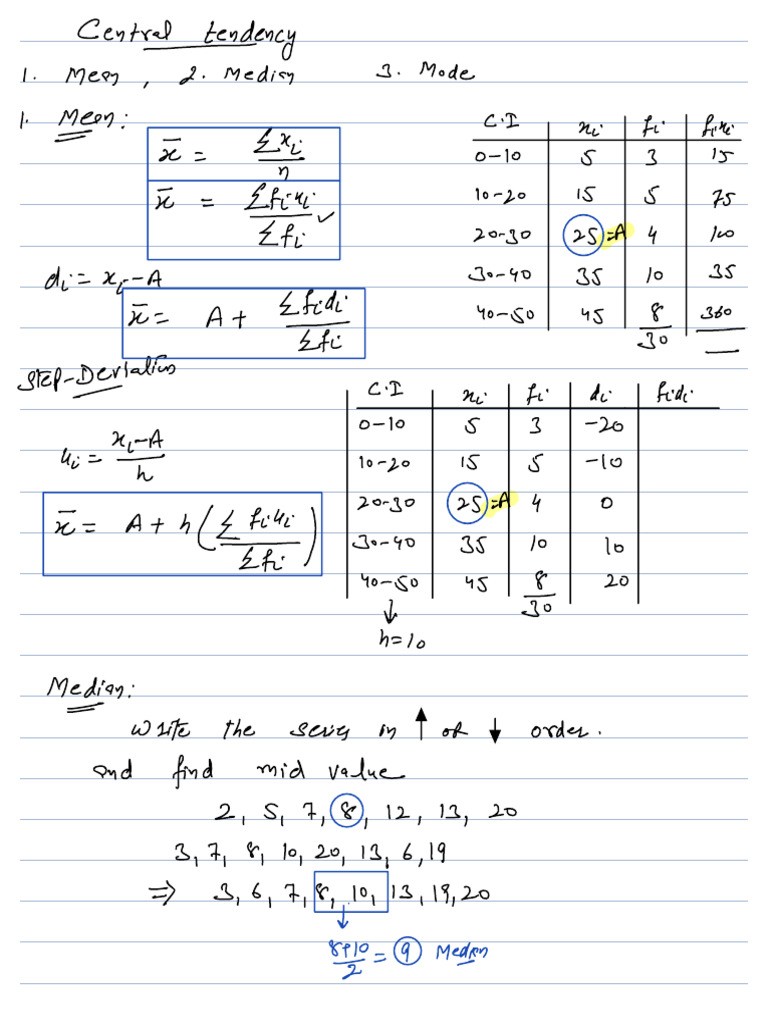 Central tendency
1. Mean , 2. Median 3. Mode
1. Mean:
x̄ = Σxi / n
x̄ = Σfixi / Σfi ✓
di = xi - A
x̄ = A + Σfidi / Σfi
C.I xi fi fixi
0-10 5 3 15
10-20 15 5 75
20-30 25 =A 4 100
30-40 35 10 35
40-50 45 8 360
30
Step-Deviation
ui = xi-A / h
x̄ = A + h(Σfiui / Σfi)
C.I xi fi di fidi
0-10 5 3 -20
10-20 15 5 -10
20-30 25 =A 4 0
30-40 35 10 10
40-50 45 8 20
30
↓
h=10
Median:
Write the series in ↑ or ↓ order.
and find mid value
2, 5, 7, 8, 12, 13, 20
3, 7, 8, 10, 20, 13, 6, 19
⇒ 3, 6, 7, 8, 10, 13, 19, 20
↓
8+10 / 2 = 9 Median